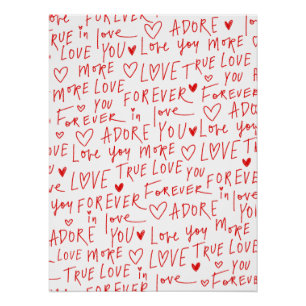 TRUE in love ADORE
LOVE YOU Love you MORE
MORE LOVE TRUE LOVE
MORE LOVE FOREVER YOU
YOU FOREVER in
FOREVER in love
ADORE YOU Love you
Love YOU MORE LOVE
LOVE TRUE LOVE
YOU FOREVER
you FOREVER in FOREVER
in love ADORE
ADORE YOU Love you
YOU Love you MORE
MORE LOVE TRUE LOVE
TRUE LOVE in YOU
in love FOREVER